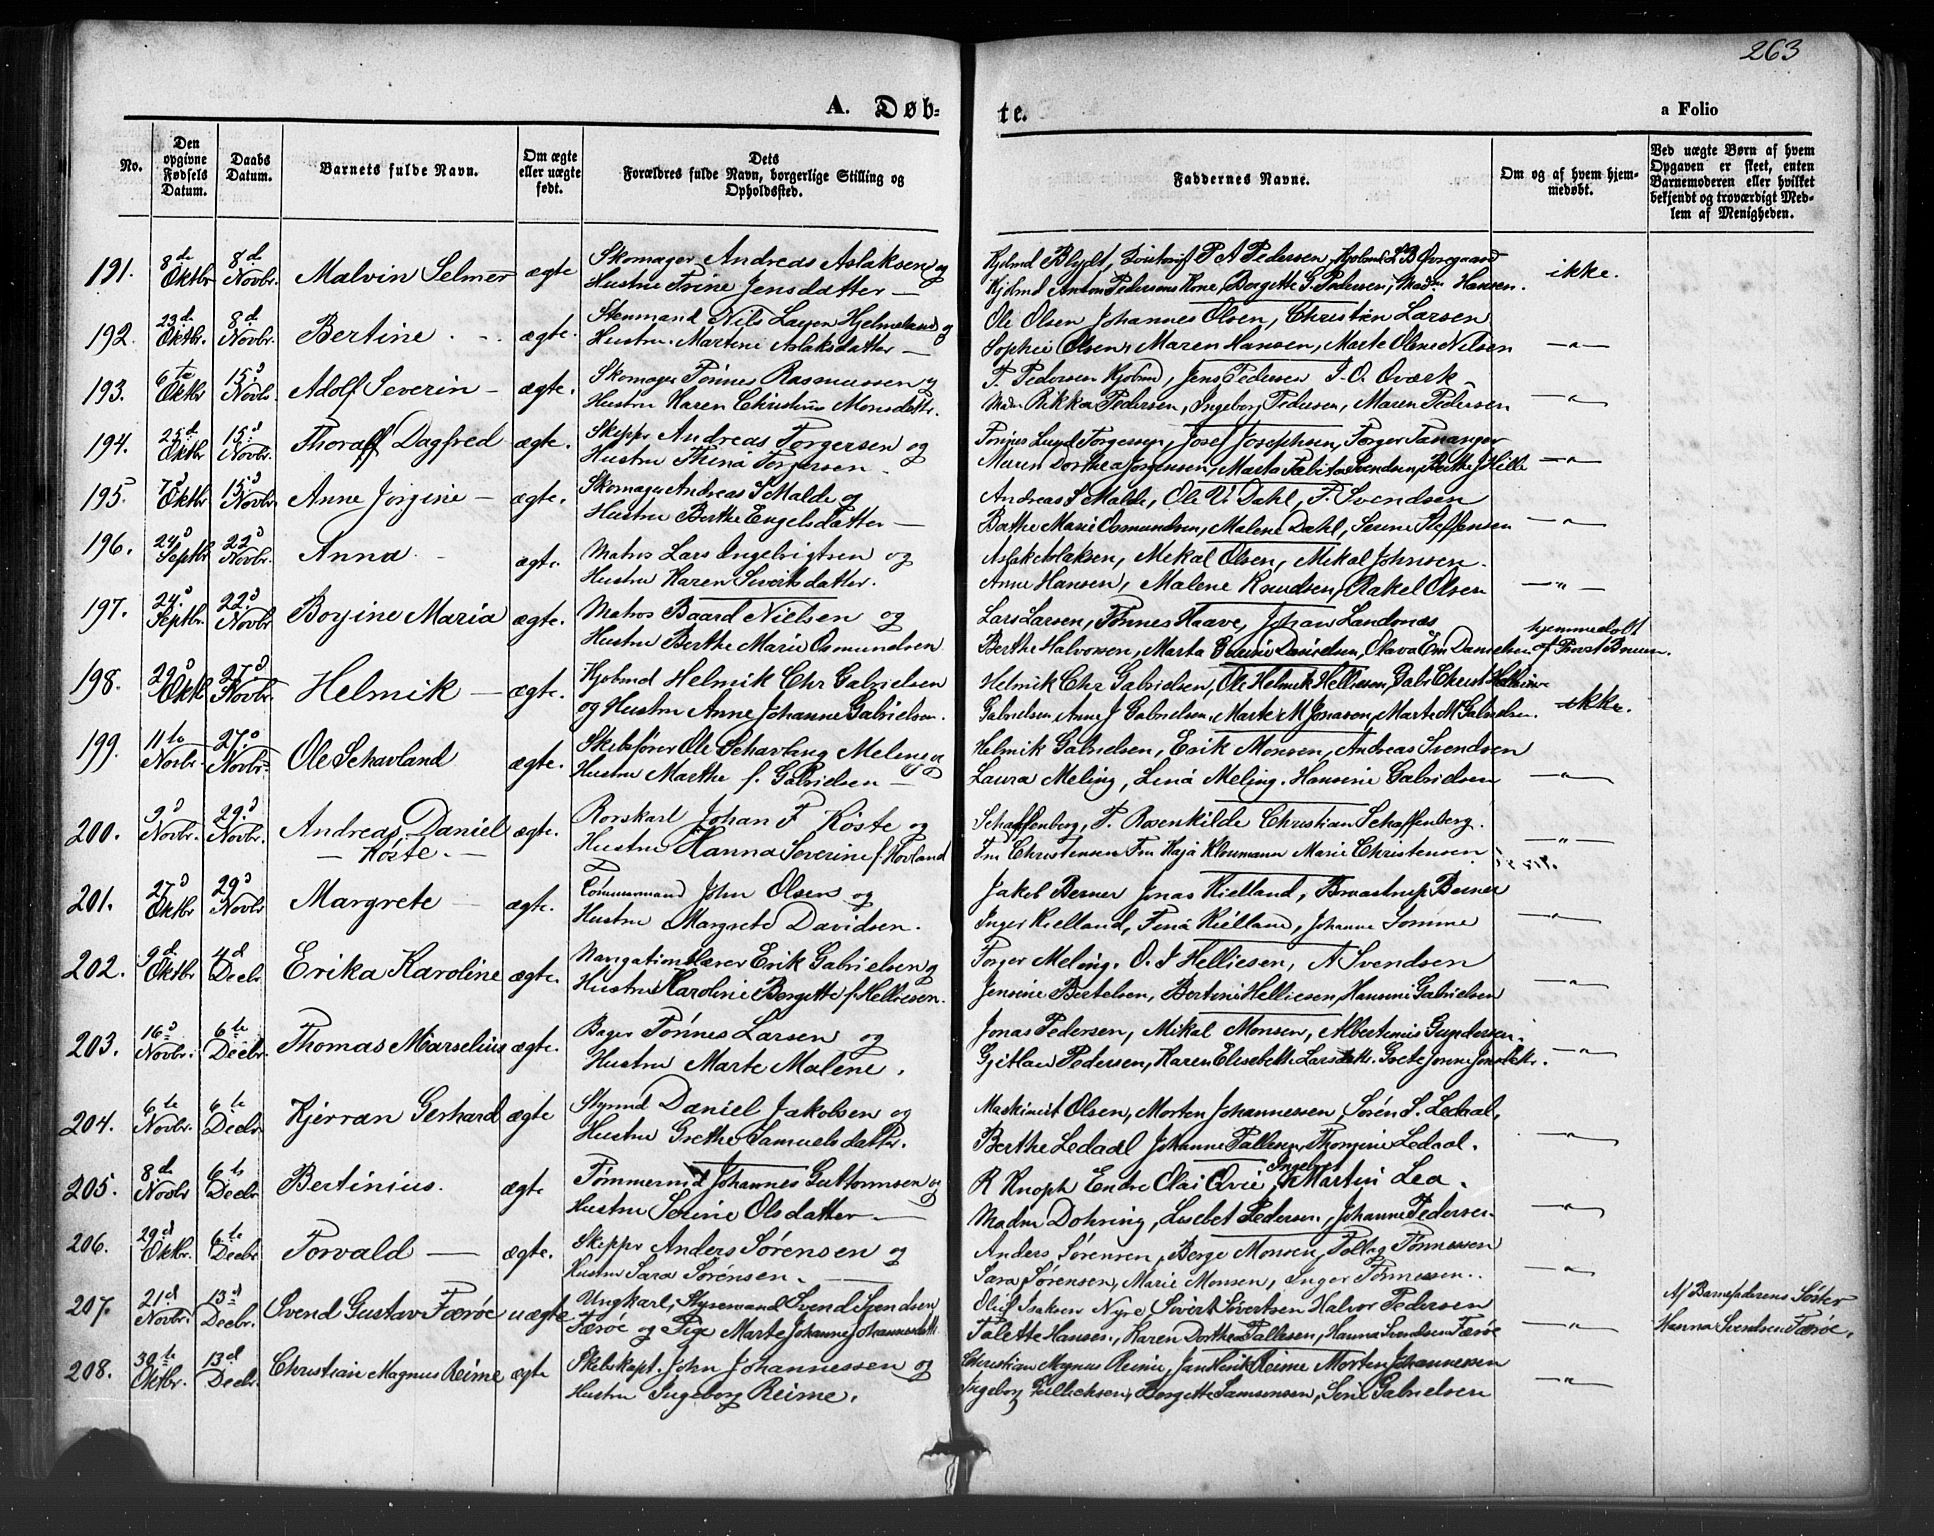 263
A. Døb-
te.
a Folio
No.
Den opgivne Fødsels Datum.
Daabs Datum.
Barnets fulde Navn.
Om ægte eller uægte født.
Dets Forældres fulde Navn, borgerlige Stilling og Opholdssted.
Faddernes Navne.
Om og af hvem hjemmedøbt.
Ved uægte Børn af hvem Opgaven er skeet, enten Barnemoderen eller hvilket bekjendt og troværdigt Medlem af Menigheden.
191. 8de Oktbr 8de Novbr. Malvin Selmer ægte Skomager Andreas Aslaksen og
Hustru Trine Jensdatter —
Kjøbmd Blydt, P A Pedersen, Kjøbmd Øvregaard
Kjøbmd Anton Pedersens Kone, Bergette G. Pedersen, Madm Hansen. ikke.
192. 23de Oktbr. 8de Novbr. Bertine ægte. Stenmand Nils Hjelmeland og
Hustru Martine Aslaksdatter —
Ole Olsen Johannes Olsen, Christian Larsen
Sophie Olsen, Maren Hansen, Marte Oline Nilsen —"—
193. 6te Oktbr 15d Novbr Adolf Severin — ægte. Skomager Tønnes Rasmussen og
Hustru Karen Christine Monsdatter.
T. Pedersen Kjøbmd, Jens Pedersen T. O. Qværk
Mad. Rikka Pedersen, Ingeborg Pedersen, Maren Pedersen —"—
194. 25de Oktbr 15d Novbr. Thoralf Dagfred ægte. Skippr Andreas Torgersen og
Hustru Thina Torgersen.
Tønnes Lund Torgersen, Josef Josephsen, Torger Tananger
Maren Dorthea Jørgensen, Marta Tabita Svendsen, Berthe J Hille —"—
195. 7d Oktbr 15d Novbr. Anne Jørgine — ægte. Skomager Andreas S Malde og
Hustru Berthe Engelsdatter —
Andreas S Malde, Ole V. Dahl, T. Svendsen
Berthe Marie Osmundsen, Malene Dahl, Serine Steffensen —"—
196. 24d Septbr 22d Novbr. Anna ægte. Matros Lars Ingebrigtsen og
Hustru Karen Sivertsdatter.
Aslak Aslaksen, Mikal Olsen, Mikal Johnsen.
Anne Hansen, Malene Knudsen, Rakel Olsen —"—
197. 24d Septbr. 22d Novbr Borgine Maria ægte. Matros Baard Nielsen og
Hustru Berthe Marie Osmundsen
Lars Larsen, Tønnes Haave, Johan Landnæs
Berthe Halvorsen, Marta Danielsen, Olava Em Danielsen hjemmedøbt af Provst Bruun.
198. 29d Oktbr 27d Novbr. Helmik — ægte. Kjøbmd Helmik Chr Gabrielsen
og Hustru Anne Johanne Gabrielsen.
Helmik Chr Gabrielsen, Ole Helmik Helliesen, Gabr Christ
Gabrielsen, Anne J Gabrielsen, Marte M Jonason, Marte M Gabrielsen. ikke.
199. 11te Novbr. 27d Novbr. Ole Schavland ægte. Skibsfører Ole Schavland Meling og
Hustru Marthe f. Gabrielsen —
Helmik Gabrielsen, Erik Monsen, Andreas Svendsen
Laura Meling, Lina Meling, Hansine Gabrielsen —"—
200. 9d Novbr. 29d Novbr. Andreas Daniel
— Køste. — ægte. Rorskarl Johan F Køste og
Hustru Hanna Severine f. Hovland
Schaffenberg, P. Rosenkilde Christian Schaffenberg.
Fru Christensen Fru Kaja Kloumann Marie Christensen —"—
201. 27d Oktbr 29d Novbr. Margrete — ægte. Tømmermand John Olsen og
Hustru Margrete Davidsen.
Jakob Berner Jonas Kielland, Braastrup Berner
Inger Kielland, Tina Kielland, Johanne Somme —"—
202. 9d Oktbr 4d Decbr. Erika Karoline ægte. Navigationslærer Erik Gabrielsen og
Hustru Karoline Bergette f. Helliesen.
Torger Meling, O. J Helliesen, A Svendsen
Jensine Bertelsen, Bertine Helliesen, Hansine Gabrielsen —"—
203. 16d Novbr. 6te Decbr. Thomas Marselius ægte. Bager Tønnes Larsen og
Hustru Marte Malene.
Jonas Pedersen, Mikal Monsen, Albertinis Gundersen.
Gjitlau Pedersen, Karen Elisabeth Larsdatter. Grete Jonne Jonsdattr. —"—
204. 6te Novbr. 6te Decbr. Kjerran Gerhard ægte Styrmd Daniel Jakobsen og
Hustru Grethe Samuelsdatter.
Maskinist Olsen, Morten Johannessen Søren S. Ledaal,
Berthe Ledaal Johanne Tallesen Thorgine Ledaal. —"—
205. 8de Novbr 6te Decbr. Bertinius. ægte Tømmermd Johannes Guttormsen og
Hustru Serine Olsdatter —
R Knoph Endre Olai Qvie, Ingebret Martin Lea.
Madm Dohring, Lisebet Pedersen, Johanne Pedersen. —"—
206. 29d Oktbr. 6te Decbr. Torvald — ægte. Skippr Anders Sørensen og
Hustru Sara Sørensen. —
Anders Sørensen, Berge Monsen, Tollag Tønnessen
Sara Sørensen, Marie Monsen, Inger Tønnessen. —"—
207. 21d Novbr. 13d Decbr. Svend Gustav Færøe uægte Ungkarl, Styrmand Svend Svendsen
Færøe og Pige Marte Johanne Johannesdttr
Oluf Isaksen Nyre, Sivert Sivertsen Halvor Pedersen
Talette Hansen, Karen Dorthea Tallesen, Hanna Svendsen Færøe —"— Af Barnefaderens Søster
Hanna Svendsen Færøe.
208. 30te Oktbr. 13d Decbr. Christian Magnus Reime ægte Skibskapt. John Johannessen og
Hustru Ingeborg Reime.
Christian Magnus Reime, Jan Henrik Reime Morten Johannessen
Ingeborg Tollichsen, Bergette Samsonsen, Sene Gabrielsen —"—